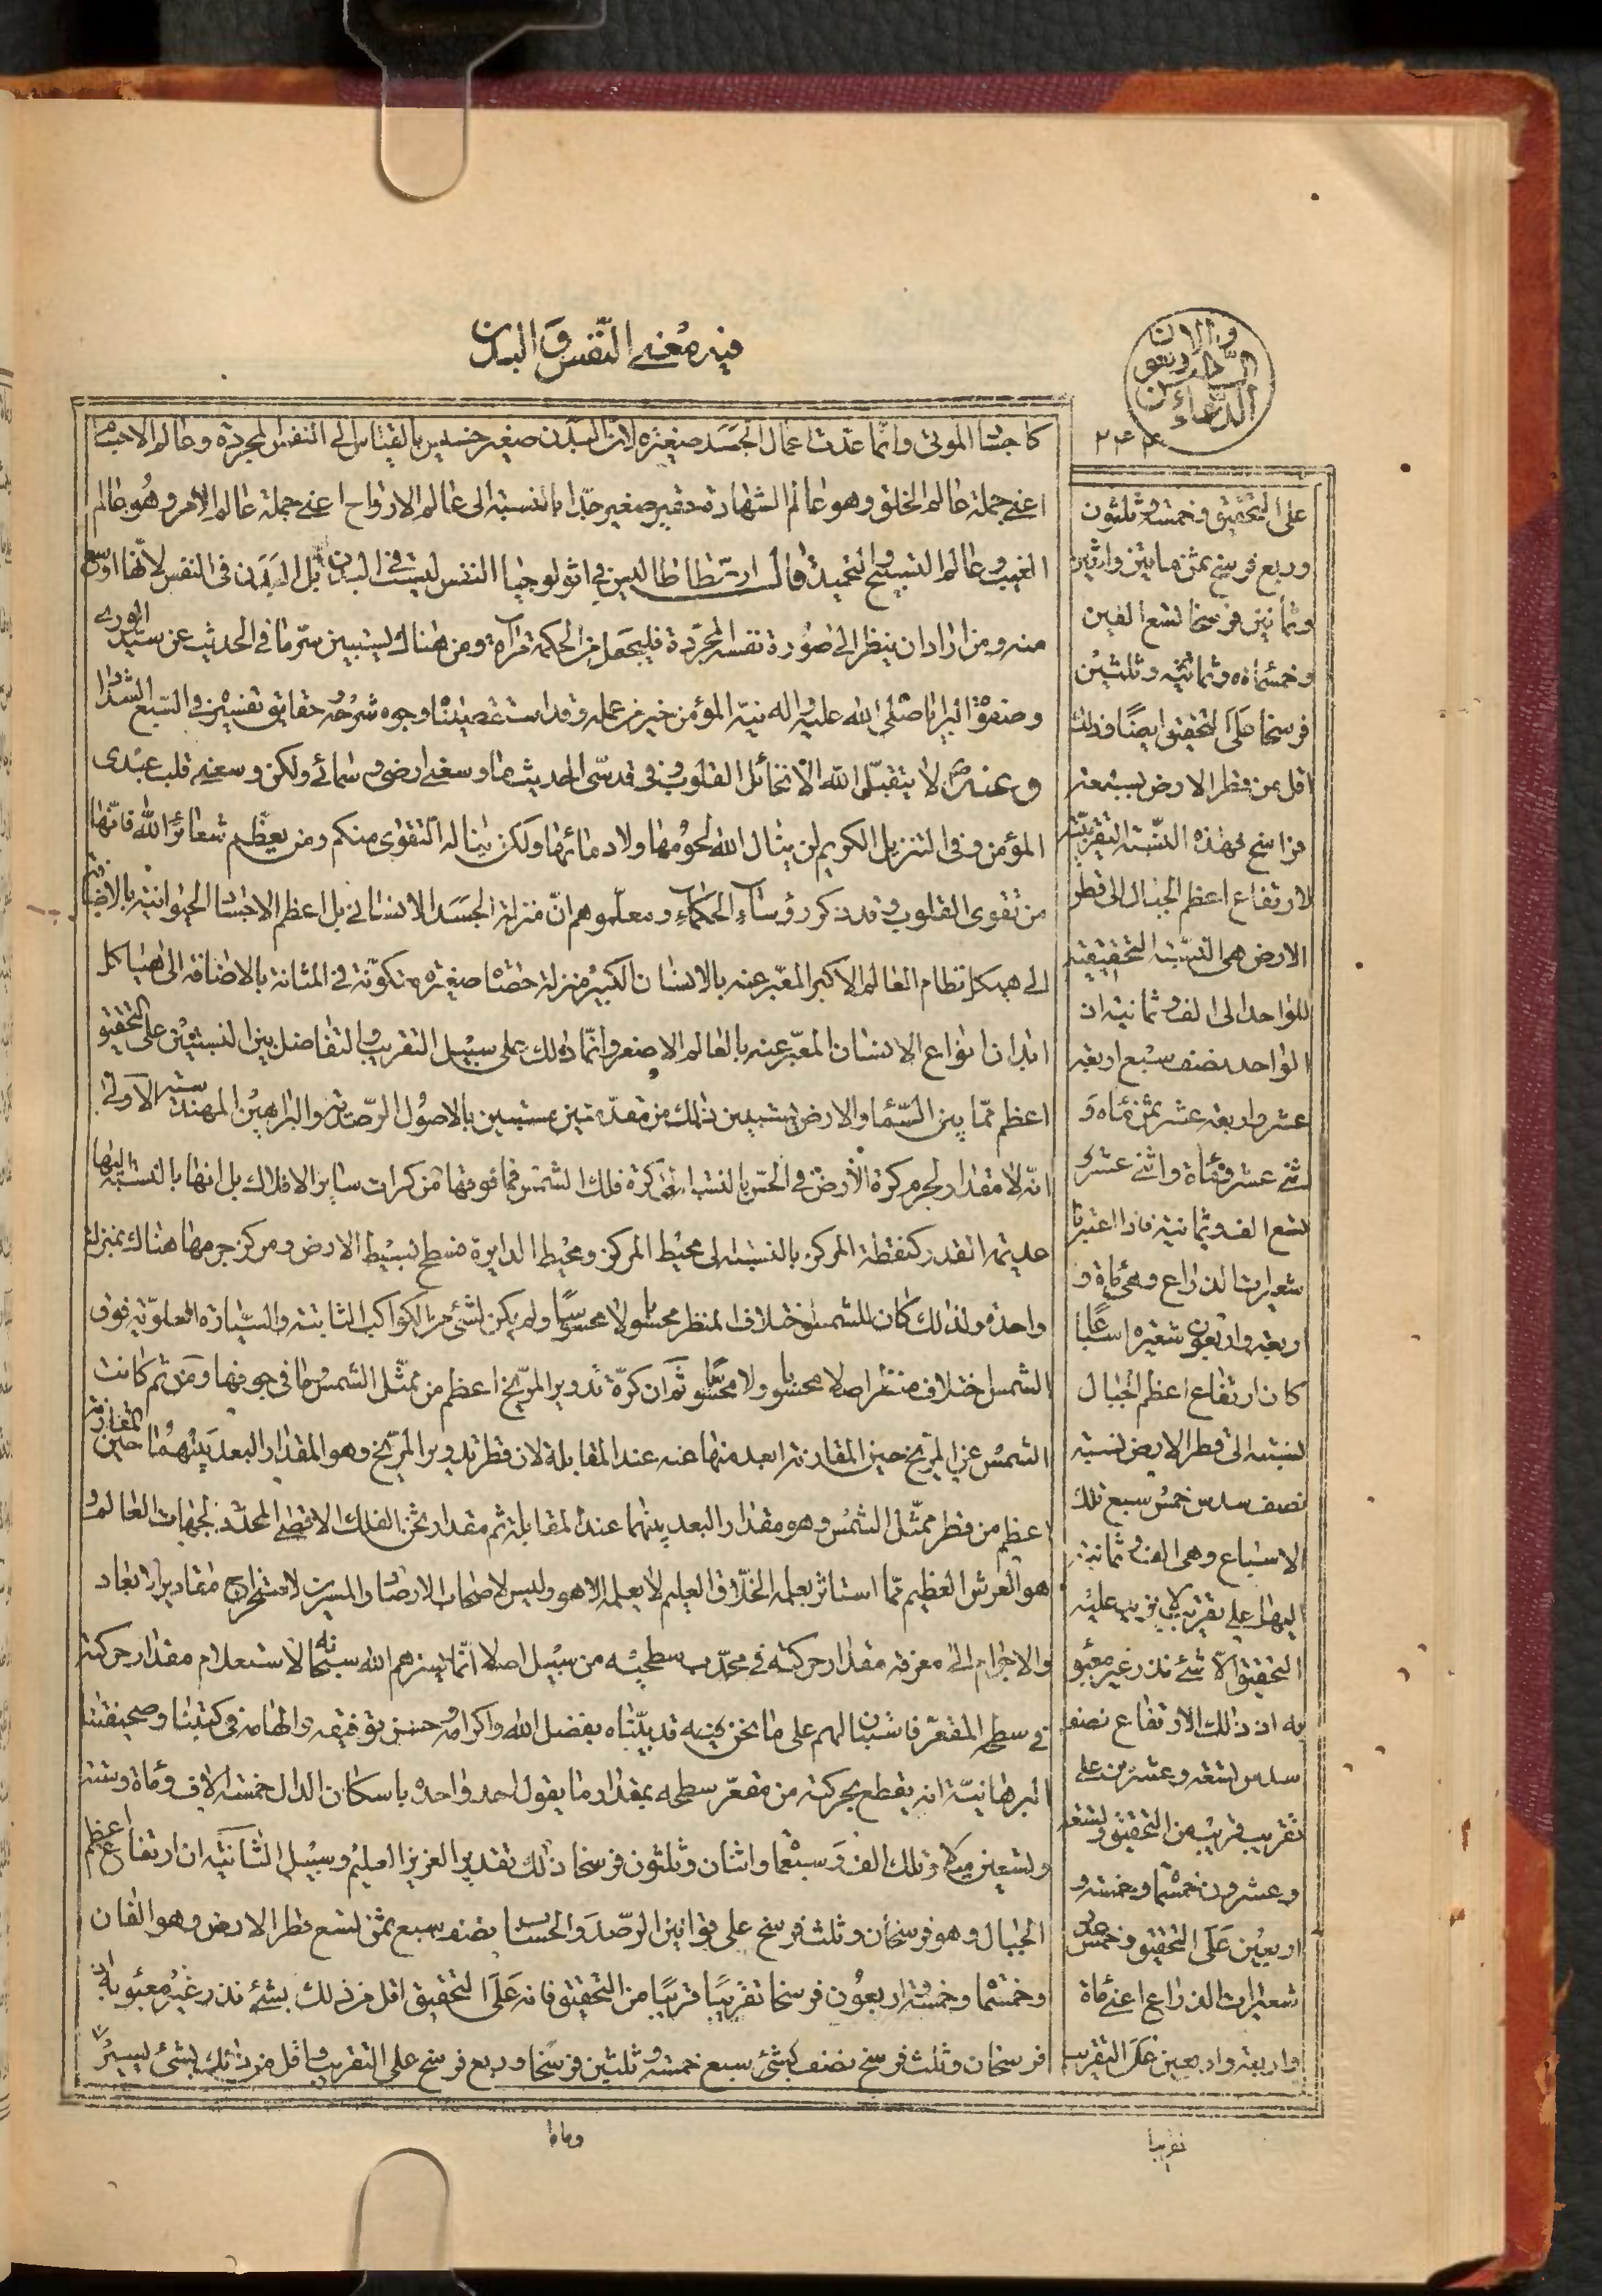 فيه معنى النفس و البدن
والأربعون
الدعاء
٢٤٤
كاجثا الموتى وانما عدت اعمال الجسد صغيرة لان البدن صغير خسيس بالقياس الى النفس المجردة وعالم الاجسام
اعنى جملة عالم الخلق وهو عالم الشهادة حقير صغير جدا بالنسبة الى عالم الارواح اعنى جملة عالم الامر وهو عالم
الغيب وعالم التسبيح والتحميد قال ارسطاطاليس فى اثولوجيا النفس ليست فى البدن بل البدن فى النفس لانها اوسع
منه ومن اراد ان ينظر الى صورة نفسه المجردة فليجعل من الحكمة مرآة ومن هناك يستبين سر ما فى الحديث عن سيد الورى
وصفوة البرايا صلى الله عليه واله نية المؤمن خير من عمله وقد استقصينا وجوه شرحه حقايق تفسيره فى السبع الشداد
وعنه لا يتقبل الله الا نخائل القلوب وفى قدسى الحديث ما وسعنى ارضى وسمائى ولكن وسعنى قلب عبدى
المؤمن وفى التنزيل الكريم لن ينال الله لحومها ولا دمائها ولكن يناله التقوى منكم ومن يعظم شعائر الله فانها
من تقوى القلوب وقد ذكر رؤساء الحكماء ومعلموهم ان منزلة الجسد الانسانى بل اعظم الاجساد الحيوانية بالاضافة
الى هيكل نظام العالم الاكبر المعبر عنه بالانسان الكبير منزلة حصاة صغيرة متكونة فى المثانة بالاضافة الى هياكل
ابدان انواع الانسان المعبر عنه بالعالم الاصغر وانما ذلك على سبيل التقريب والتفاضل بين النسبتين على التحقيق
اعظم مما بين السماء والارض يستبين ذلك من مقدمتين مستبين بالاصول الرصدية والبراهين المهندسية الاولى
انه لا مقدار لجرم كرة الارض فى الحس بالنسبة الى كرة فلك الشمس فما فوقها من كرات ساير الافلاك بل انها بالنسبة اليها
عديمة القدر كنقطة المركز بالنسبة الى محيط المركز ومحيط الدايرة فسطح بسيط الارض ومركز جرمها هناك بمنزلة
واحدة ولذلك كان للشمس اختلاف المنظر محسوبا لا محسوسا ولم يكن لشئ من الكواكب الثابتة والسيارة العلوية فوق
الشمس اختلاف منظر اصلا لا محسوبا ولا محسوسا ثم ان كرة تدوير المريخ اعظم من ممثل الشمس وما فى جوفها ومن ثم كانت
الشمس عن المريخ حين المقارنة ابعد منها عنه عند المقابلة لان قطر تدوير المريخ وهو المقدار البعد بينهما حين المقارنة
اعظم من قطر ممثل الشمس وهو مقدار البعد بينهما عند المقابلة ثم مقدار ثخن الفلك الاقصى المحدد لجهات العالم و
هو العرش العظيم مما استاثر بعلمه الخلاق العليم لا يعلمه الا هو وليس لاصحاب الارصاد والمسيرين لاستخراج مقادير الابعاد
والاجرام الى معرفة مقدار حركته فى محدب سطحيه من سبيل اصلا انما يسرهم الله سبحانه لاستعلام مقدار حركته
فى سطحه المقعر فاستبان لهم على ما نحن فيه قد بيناه بفضل الله واكرامه وحسن توفيقه والهامه فى كتبنا وصحيفتنا
البرهانية انه يقطع بحركته من مقعر سطحه بمقدار ما يقول احد واحد باسكان الدال خمسة الاف ومأة وستة
وتسعين ميلا وذلك الف وسبعمأة واثنان وثلثون فرسخا ذلك تقدير العزيز العليم وسبيل الثانية ان ارتفاع اعظم
الجبال وهو فرسخان وثلث فرسخ على قوانين الرصد والحساب نصف سبع ثمن تسع قطر الارض وهو الفان
وخمسمأة وخمسة واربعون فرسخا تقريبا قريبا من التحقيق فانه على التحقيق اقل من ذلك بشئ نذر غير معبؤ به
فرسخان وثلث فرسخ نصف سبع خمسة وثلثين فرسخا وربع فرسخ على التقريب واقل من ذلك بشئ يسير
وماه
على التحقيق فخمسة وثلثون
وربع فرسخ ثمن مايتين واثنين
وثمانين فرسخا تسع الفين
وخمسمأة وثمانية وثلثين
فرسخا على التحقيق ايضا فذلك
اقل من قطر الارض بسبعة
فراسخ فهذه النسبة التقريبية
لارتفاع اعظم الجبال الى قطر
الارض هى النسبة التحقيقية
للواحد الى الف وثمانية اذ
الواحد نصف سبع اربعة
عشر واربعة عشر ثمن مأة و
اثنى عشر ومأة واثنى عشر
تسع الف وثمانية فاذا اعتبرنا
شعيرات الذراع وهى مأة و
اربعة واربعون شعيرة اسباعا
كان ارتفاع اعظم الجبال
نسبته الى قطر الارض نسبة
نصف سدس خمس سبع تلك
الاسباع وهى الف وثمانية
اليها على تقريب لا يزيد عليه
التحقيق الا شئ نذر غير معبؤ
به اذ ذلك الارتفاع نصف
سدس تسعة وعشرين على
تقريب قريب من التحقيق وتسعة
وعشرون خمس مأة وخمسة و
اربعين على التحقيق وخمس
شعيرات الذراع اعنى مأة
واربعة واربعين على التقريب
تقريبا